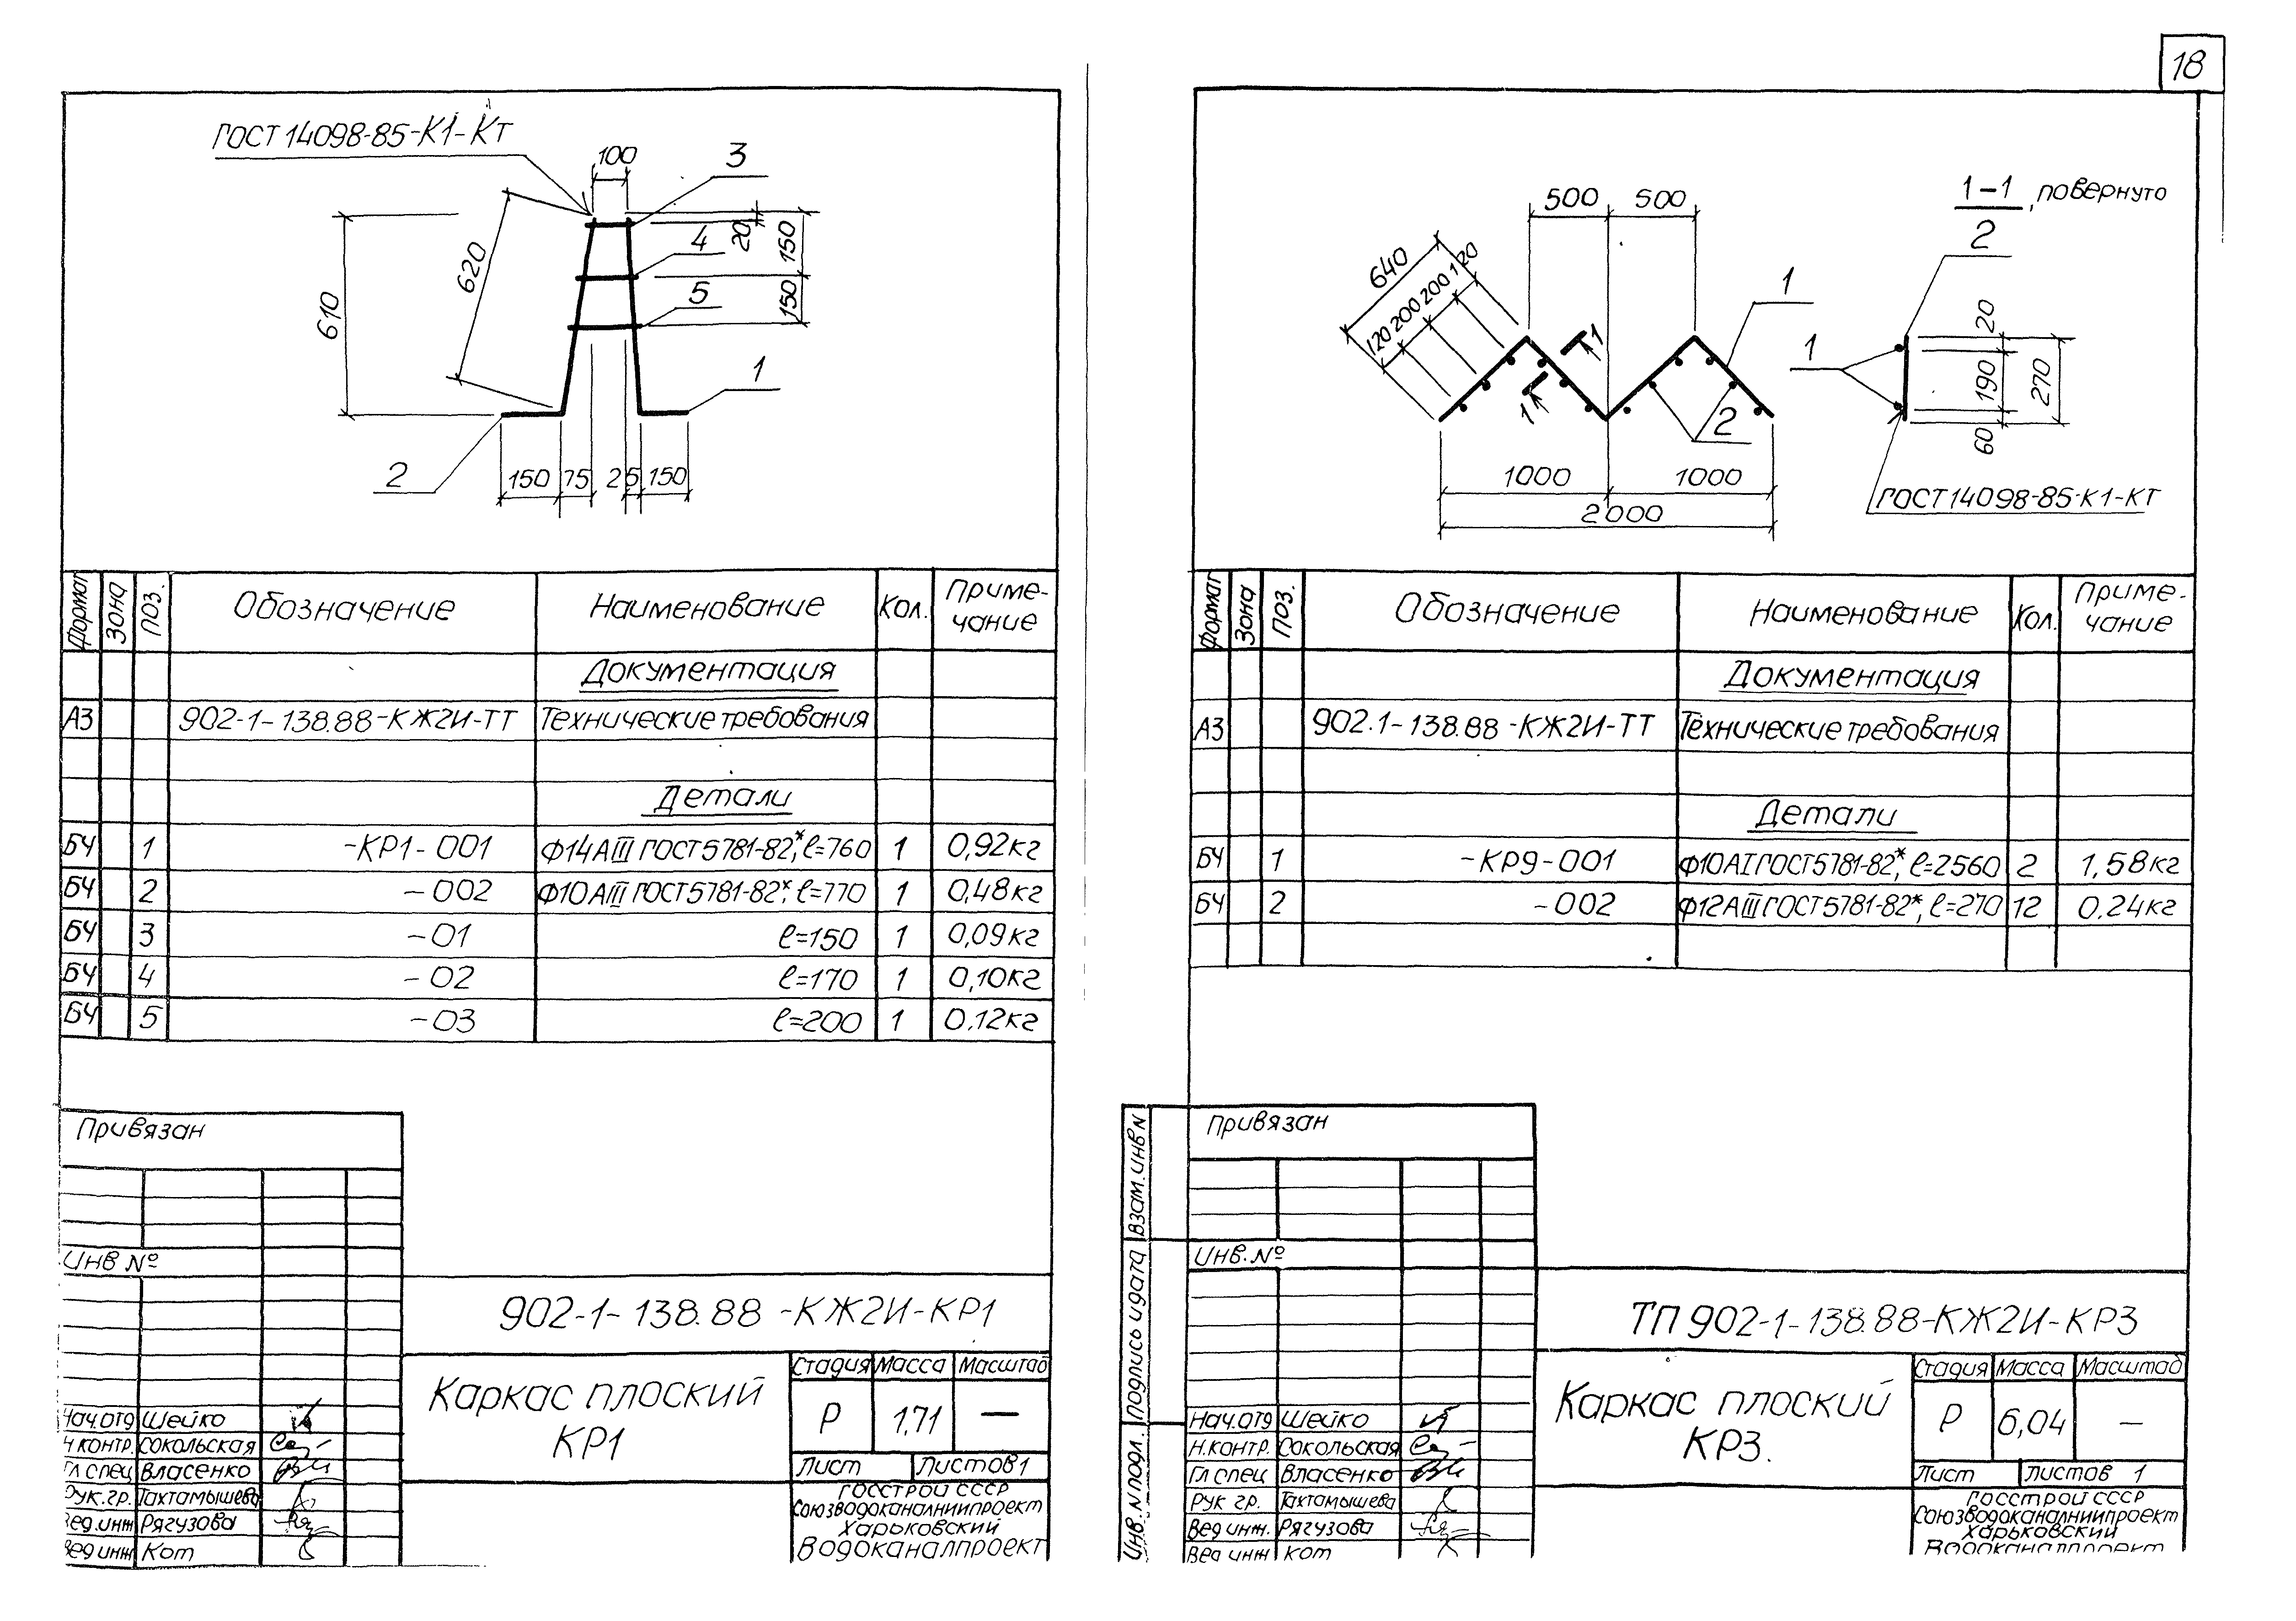 18
ГОСТ 14098-85-К1-Кт
100
3
4
5
20
150
150
620
610
1
2
150 75 25 150
Формат Зона Поз. Обозначение Наименование Кол. Приме-
чание
Документация
А3 902-1-138.88-КЖ2И-ТТ Технические требования
Детали
БЧ 1 -КР1-001 Ф14АIII ГОСТ5781-82*, ℓ=760 1 0,92кг
БЧ 2 -002 Ф10АIII ГОСТ5781-82*, ℓ=770 1 0,48кг
БЧ 3 -01 ℓ=150 1 0,09кг
БЧ 4 -02 ℓ=170 1 0,10кг
БЧ 5 -03 ℓ=200 1 0,12кг
Привязан
Инв №
902-1-138.88-КЖ2И-КР1
Каркас плоский
КР1
Стадия Масса Масштаб
Р 1,71 —
Лист Листов 1
Госстрой СССР
Союзводоканалниипроект
Харьковский
Водоканалпроект
Нач.отд Шейко
Н контр. Сокольская
Гл спец Власенко
Рук.гр. Тахтамышева
Вед.инж Рягузова
Вед инж Кот
500 500
640
120 200 200 120
1
1
1
2
1000 1000
2000
1-1, повернуто
2
2
1
20
190
270
60
ГОСТ 14098-85-К1-КТ
Формат Зона Поз. Обозначение Наименование Кол. Приме-
чание
Документация
А3 902.1-138.88-КЖ2И-ТТ Технические требования
Детали
БЧ 1 -КР9-001 Ф10АI ГОСТ5781-82*, ℓ=2560 2 1,58кг
БЧ 2 -002 Ф12АIII ГОСТ5781-82*, ℓ=270 12 0.24кг
Взам.инв N
Подпись и дата
Инв. N подл.
Привязан
Инв. №
ТП 902-1-138.88-КЖ2И-КР3
Каркас плоский
КР3.
Стадия Масса Масштаб
Р 6,04 —
Лист Листов 1
Госстрой СССР
Союзводоканалниипроект
Харьковский
Водоканалпроект
Нач.отд Шейко
Н.контр. Сокольская
Гл спец Власенко
Рук гр. Тахтамышева
Вед инж. Рягузова
Вед инж Кот